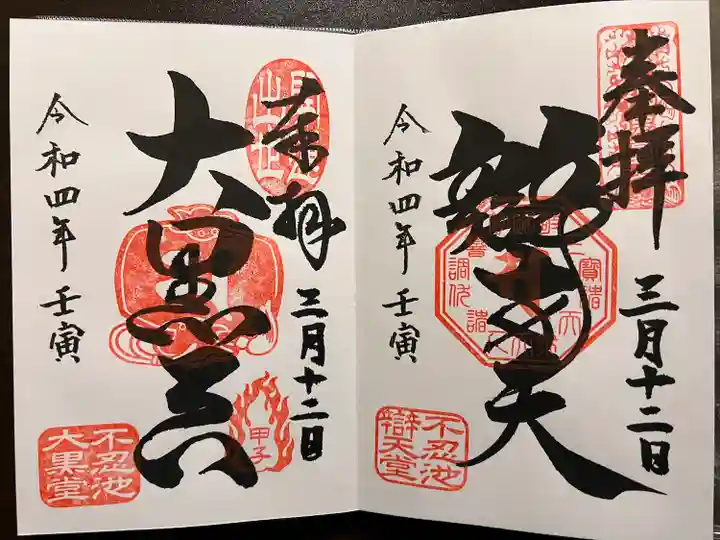 奉拝
三月十二日
辯才天
令和四年 壬寅
不忍池
辯天堂
奉拝
三月十二日
大黒天
令和四年 壬寅
甲子
不忍池
大黒堂